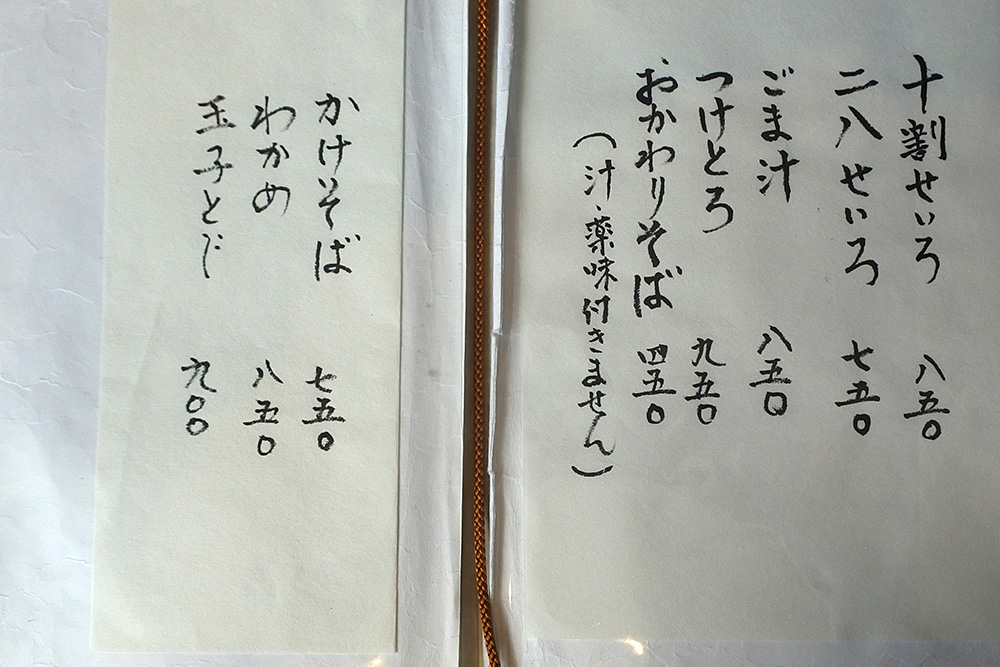 十割せいろ 八五〇
二八せいろ 七五〇
ごま汁 八五〇
つけとろ 九五〇
おかわりそば 四五〇
(汁、薬味付きません)
かけそば 七五〇
わかめ 八五〇
玉子とじ 九〇〇